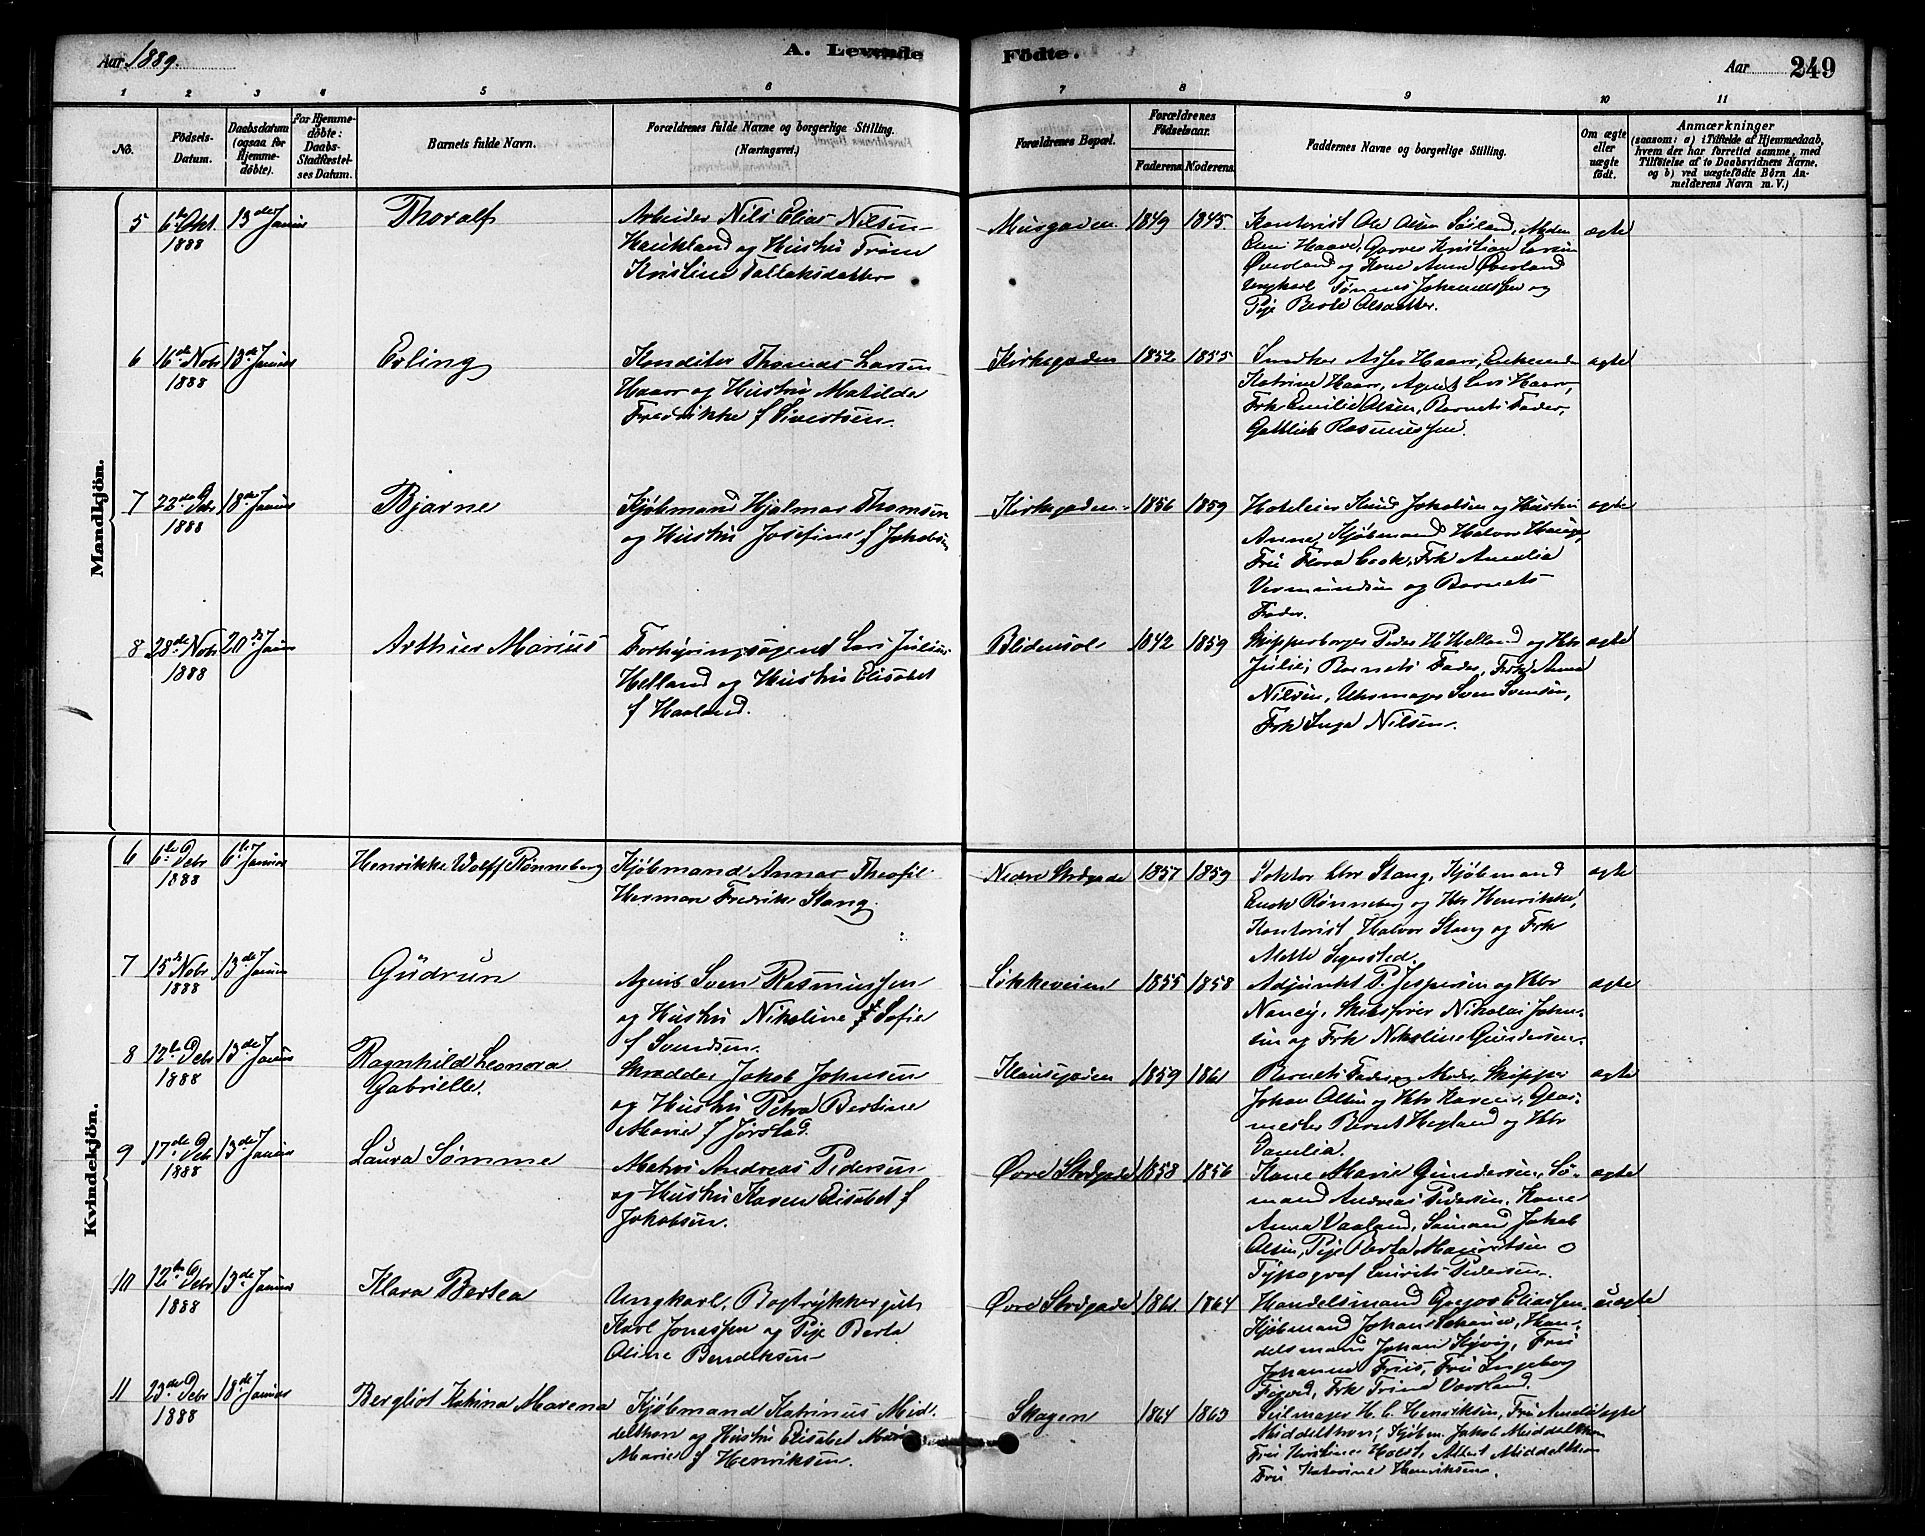 Aar 1889.
A. Levende Födte.
Aar
249
1 2 3 4 5 6 7 8 9 10 11
No.
Födsels-Datum.
Daabsdatum (ogsaa for Hjemme-döbte).
For Hjemme-döbte: Daabs-Stadfæstel-ses Datum.
Barnets fulde Navn.
Forældrenes fulde Navne og borgerlige Stilling.
(Næringsvei.)
Forældrenes Bopæl.
Forældrenes Födselsaar.
Faderens. Moderens.
Faddernes Navne og borgerlige Stilling.
Om ægte eller uægte født.
Anmærkninger
(saasom: a) i Tilfælde af Hjemmedaab,
hvem der har forrettet samme, med
Tilföielse af to Daabsvidners Navne,
og b) ved uægtefödte Börn An-
melderens Navn m. V.)
Mandkjön.
5 6te Okt. 1888 13de Januar Thoralf
Arbeider Nils Elias Nilsen
Haukland og Hustru Trine
Kristine Tallaksdatter
Musgaden 1849 1845
Kontorist Ole Olsen Søiland, Moder
Elen Haave, Garver Kristian Larsen
Øverland og Kone Anna Øverland
Ungkarl Tønnes Johannessen og
Pige Berte Olsdatter.
ægte
6 16de Nobr 1888 13de Januar Erling
Konditor Thomas Larsen
Haarr og Hustru Matilde
Fredrikke f Sivertsen.
Kirkegaden 1852 1855
Snedker Asser Haarr, Enkemd
Katrine Haarr, Agent Lars Haarr,
Frk Emilie Olsen, Barnets Fader,
Gottlieb Rasmussen.
ægte
7 22de Debr 1888 18de Januar Bjarne
Kjøbmand Hjalmar Thomsen
og Hustru Josefine f Jakobsen
Kirkegaden 1856 1859
Hoteleier Knud Jakobsen og Hustru
Anne, Kjøbmand Halvor Hauge,
Fru Flora Cook, Frk Amalia
Vermundsen og Barnets
Fader.
ægte
8 28de Nobr 1888 20de Januar Arthur Marius
Forhyringsagent Lars Julius
Helland og Hustru Elisabet
f Haaland.
Blidensol 1842 1859
Skipperborger Peder H Helland og Htr
Julie, Barnets Fader, Frk Anna
Nilsen, Uhrmager Sven Svensen,
Frk Inga Nilsen.
ægte
Kvindekjön.
6 6te Debr 1888 6te Januar Henrikke Wolff Rønneberg
Kjøbmand Annar Theofil
Herman Fredrik Stang
Nedre Strdgade 1857 1859
Doktor Chr Stang, Kjøbmand
Rønneberg og Htr Henrikke,
Kontorist Halvor Stang og Frk
Mette Segersted.
ægte
7 15de Nobr 1888 13de Januar Gudrun
Agent Sven Rasmussen
og Hustru Nikoline Sofie
f Svendsen.
Løkkeveien 1855 1858
Adjunkt P. Jespersen og Htr
Nancy, Skibsfører Nikolai John-
sen og Frk Nikoline Gundersen.
ægte
8 12te Debr 1888 13de Januar Ragnhild Leonora
Gabrielle.
Skrædder Jakob Johnsen
og Hustru Petra Bertine
Marie f Jørstad.
Klausgaden 1859 1861
Barnets Fader og Moder, Skipper
Johan Olsen og Htr Karen, Glar-
mester Bernt Hegland og Htr
Danilia.
ægte
9 17de Debr 1888 13de Januar Laura Sømme
Matros Andreas Pedersen
og Hustru Karen Elisabet f
Jakobsen.
Øvre Strdgade 1858 1856
Kone Marie Gundersen, Sø-
mand Andreas Pedersen, Kone
Anna Vaaland, Sømand Jakob
Olsen, Pige Berta Mauritsen o
Typograf Laurits Pedersen.
ægte
10 12te Debr 1888 13de Januar Klara Bertea
Ungkarl, Bogtrykkergut
Karl Jonassen og Pige Berta
Oline Bendiksen
Øvre Strdgade 1861 1864
Handelsmand Gregor Eliassen
Kjøbmand Johan Schanche, Han-
delsmand Johan Kyvig, Fru
Johanne Friis, Fru Ingeborg
Figved, Frk Trine Vaoland.
uægte
11 23de Debr 1888 18de Januar Bergliot Katrina Marena
Kjøbmand Katrinus Mid-
delthon og Hustru Elisabet
Marie f Henriksen.
Skagen 1864 1863
Seilmager H. C. Henriksen, Fru Amalie
Middelthon, Kjøbm. Jakob Middelthon
Fru Kristine Holst, Albert Middelthon
Fru Katrine Henriksen.
ægte